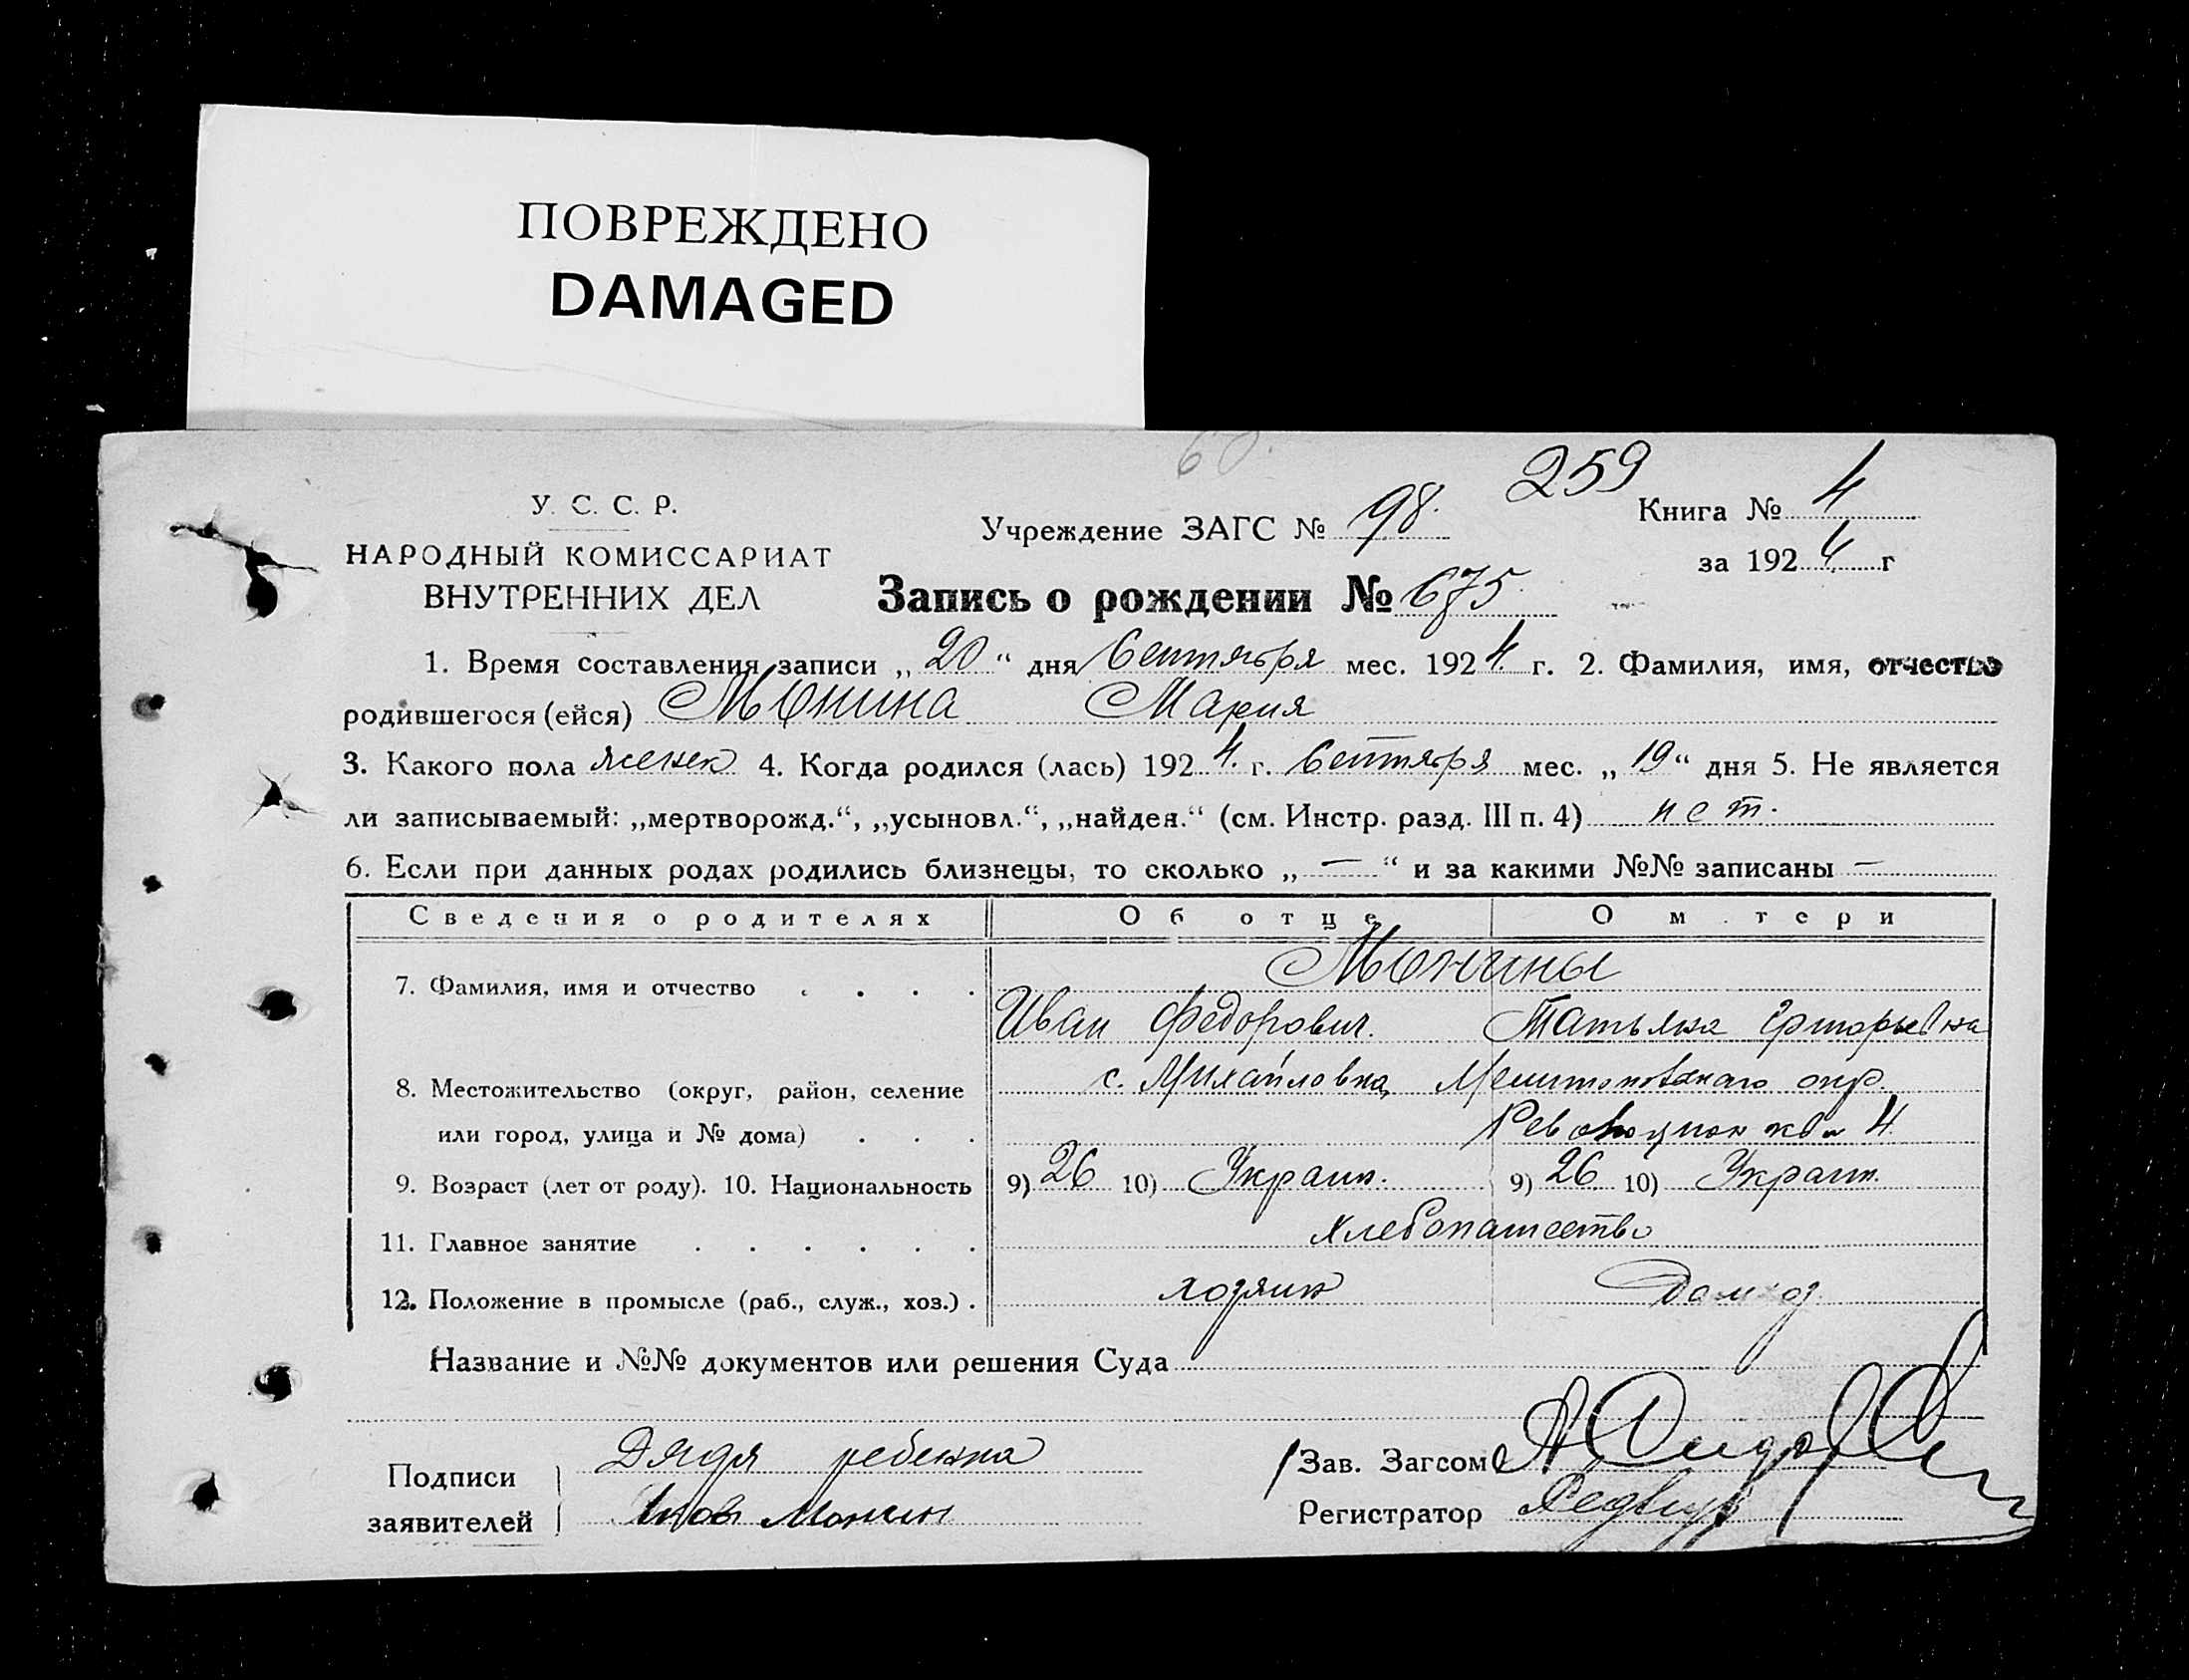 ПОВРЕЖДЕНО
DAMAGED
60.
259
У. С. С. Р.
НАРОДНЫЙ КОМИССАРИАТ
ВНУТРЕННИХ ДЕЛ
Учреждение ЗАГС № 98.
Книга № 4
за 1924 г
Запись о рождении № 675.
1. Время составления записи „20“ дня Сентября мес. 1924 г. 2. Фамилия, имя, отчество
родившегося (ейся) Монина Мария
3. Какого пола женск 4. Когда родился (лась) 1924. г. Сентября мес. „19“ дня 5. Не является
ли записываемый: „мертворожд.“, „усыновл.“, „найден.“ (см. Инстр. разд. III п. 4) нет.
6. Если при данных родах родились близнецы, то сколько „—“ и за какими №№ записаны —
Сведения о родителях Об отце О м тери
7. Фамилия, имя и отчество . . . . Монины
Иван Федорович. Татьяна Григорьевна
8. Местожительство (округ, район, селение с. Михайловка, Мелитопольского окр.
или город, улица и № дома) . . . Революцион 4.
9. Возраст (лет от роду). 10. Национальность 9) 26 10) Украин. 9) 26 10) Украин.
11. Главное занятие . . . . . . хлебопашество
12. Положение в промысле (раб., служ., хоз.) . хозяин Домхоз
Название и №№ документов или решения Суда
Подписи заявителей
Дядя ребенка
Яков Монин
Зав. Загсом
Регистратор